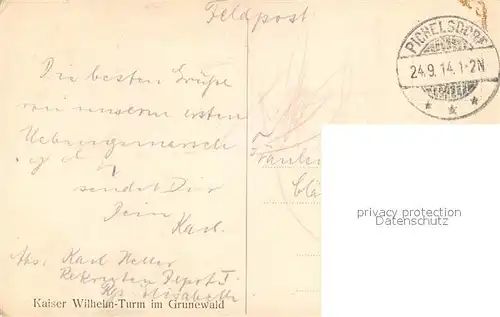 Feldpost
PICHELSDORF
24.9.14.1-2N
Die besten Grüße
von unserm ersten
Uebungsmarsch
sendet Dir
Dein
Karl.
Abs. Karl
Rekruten Depot I.
Elisabeth
Kaiser Wilhelm-Turm im Grunewald
Fräulein
privacy protection
VOPRDDSV